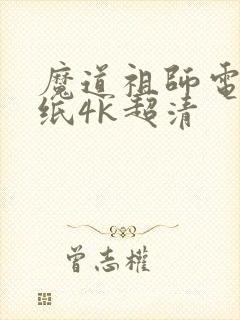 魔道祖師電
纸4K超清
曾志權